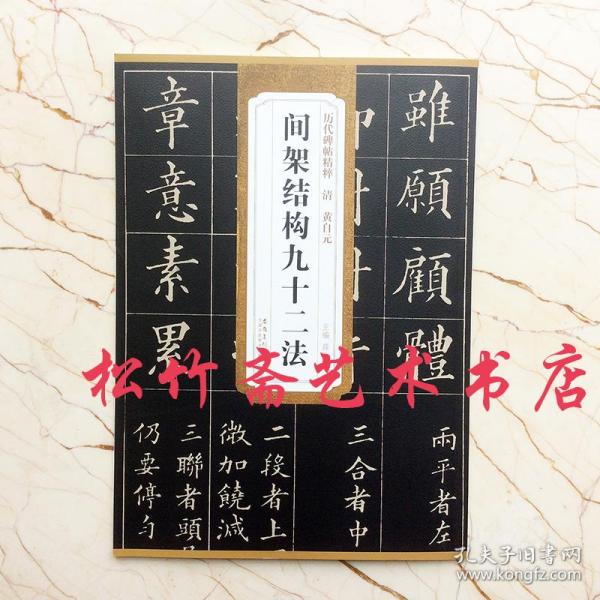 雖願顧體
兩平者左
三合者中
二段者上
微加饒減
章意素累
三聯者頭
仍要停勻
历代碑帖精粹 清 黄自元
间架结构九十二法
主编
松竹斋艺术书店
孔夫子旧书网
www.kongfz.com